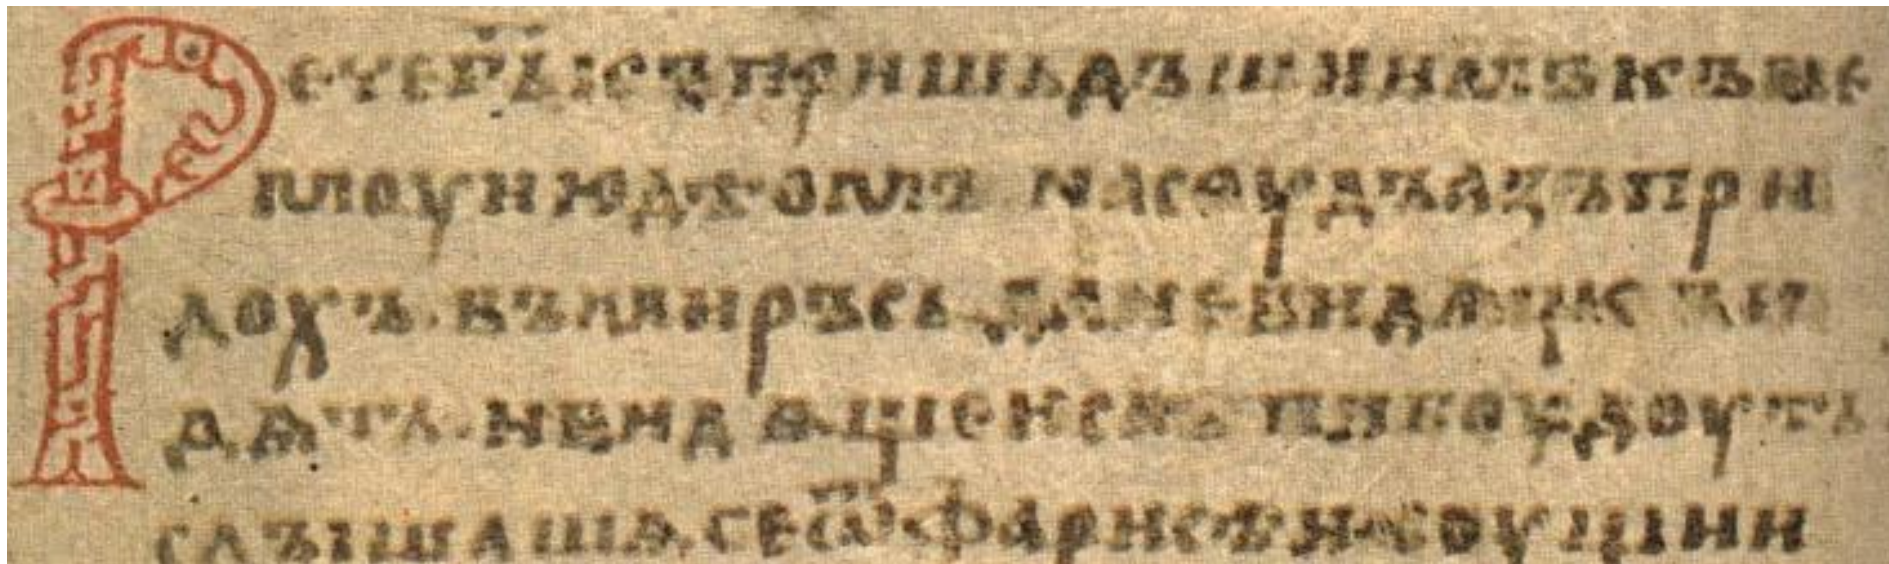 Речег҃ь ісъпришьдъшиимъкъне
моуиюдѣомъ насоудъазъпри
дохъ·въмиръсь·даневидѧщеєви
дѧть·ивидѧщеислѣпибоудоуть
слъішашѧсеѿфарисѣи·соущии